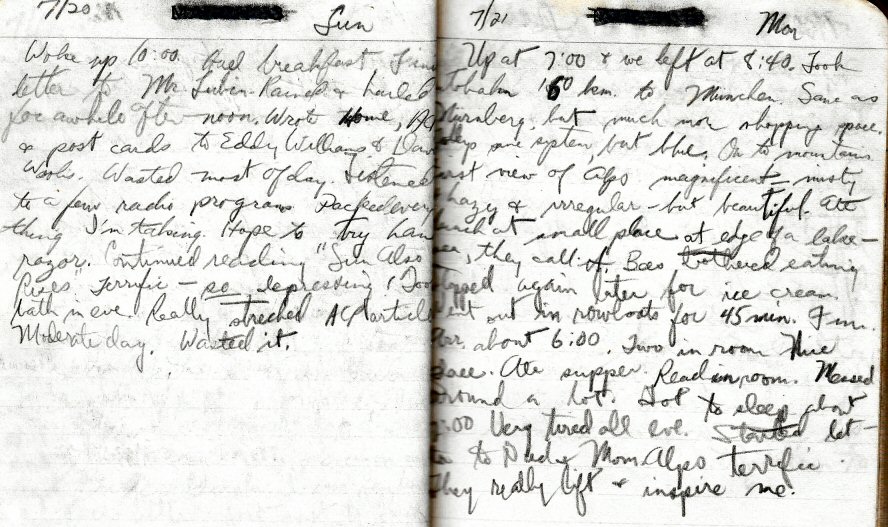 7/20
Sun
Woke up 10:00. Had breakfast.
letter to Mr. Lubin. Rained & hailed
for awhile after-noon. Wrote Home,
& post cards to Eddy Williams & Dave
Wasted most of day. Listened
to a few radio programs. Packed every
thing I'm taking. Hope to try
razor. Continued reading "Sun Also
Rises" Terrific - so depressing! Took
bath in eve. Really streched article
Moderate day. Wasted it.
7/21
Mon
Up at 7:00 & we left at 8:40. Took
160 km. to Munchen. Same as
Nurnberg, but much more shopping space.
system, but blue. On to mountains
first view of Alps magnificent - misty
hazy & irregular - but beautiful. Ate
lunch at small place at edge of a lake -
they call it. Bees bothered eating
stopped again later for ice cream.
went out in rowboats for 45 min. Fun.
about 6:00. Two in room Nice
place. Ate supper. Read in room. Messed
around a lot. Got to sleep about
:00 Very tired all eve. Started let-
ter to Dad & Mom. Alps terrific.
They really lift & inspire me.